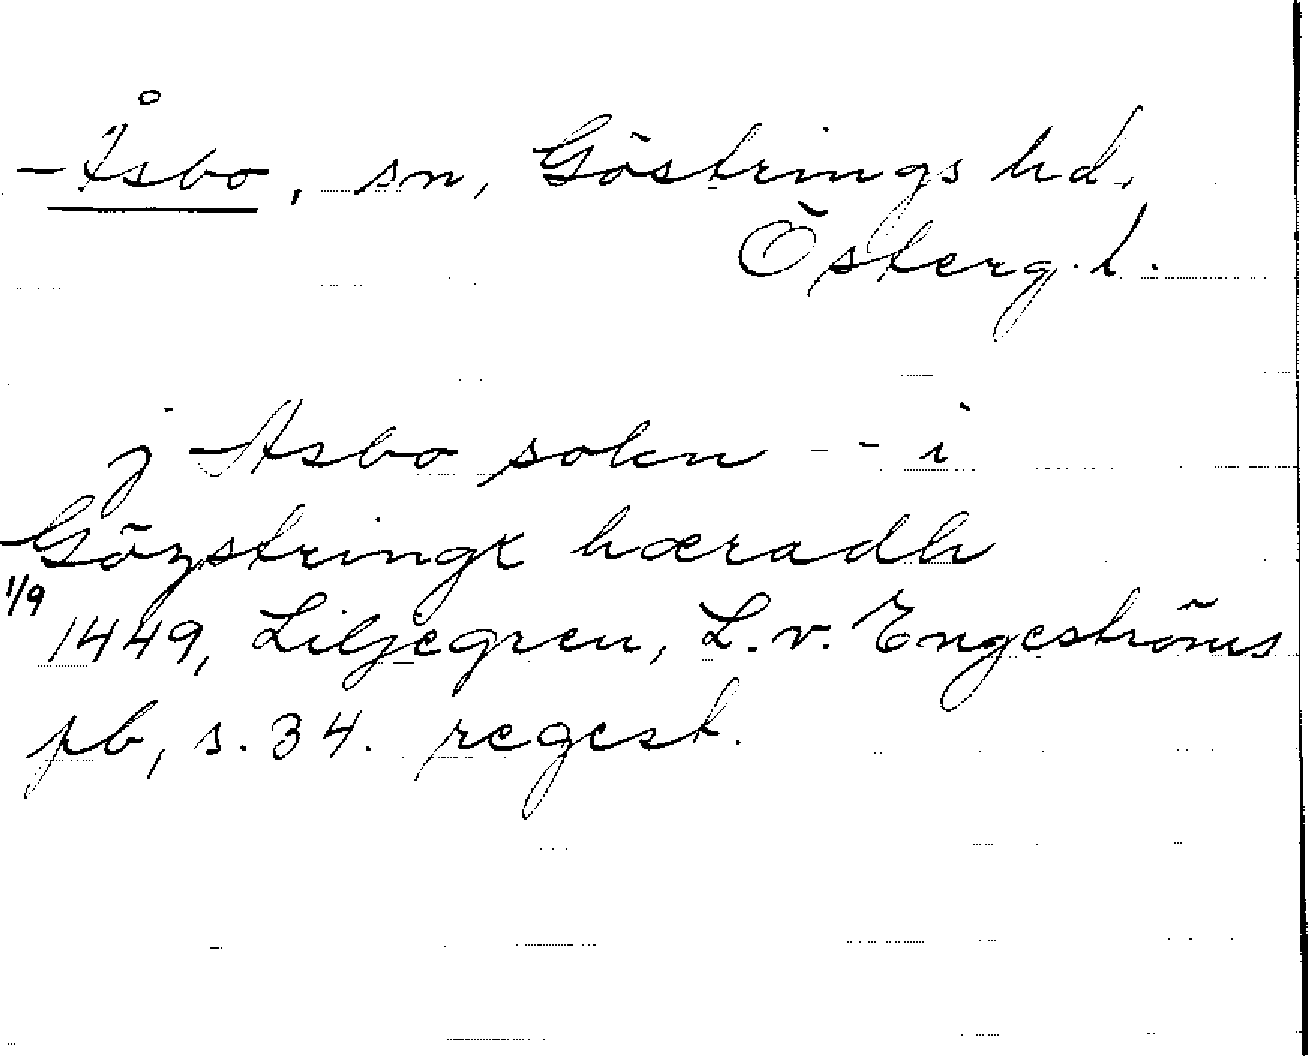 Åsbo, sn, Göstrings hd.
Österg. l.
j Asbo sokn - - i
Gözstringx hæradh
1/9
1449, Liljegren, L. v. Engeströms
pb, s. 34. regest.